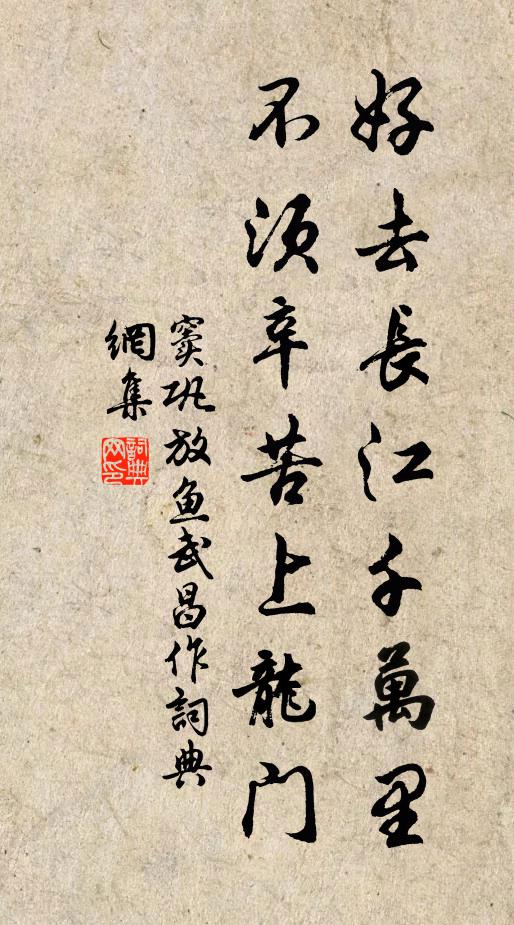 好去長江千萬里
不須辛苦上龍门
窦巩放鱼武昌作詞典
網集
詞典网印